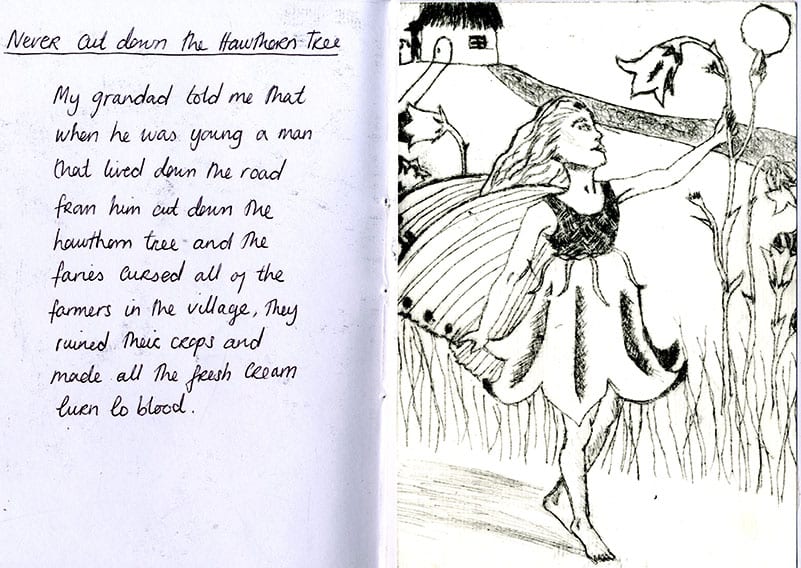 Never cut down the Hawthorn Tree
My grandad told me that
when he was young a man
that lived down the road
from him cut down the
hawthorn tree and the
faries cursed all of the
farmers in the village, they
ruined their crops and
made all the fresh cream
turn to blood.